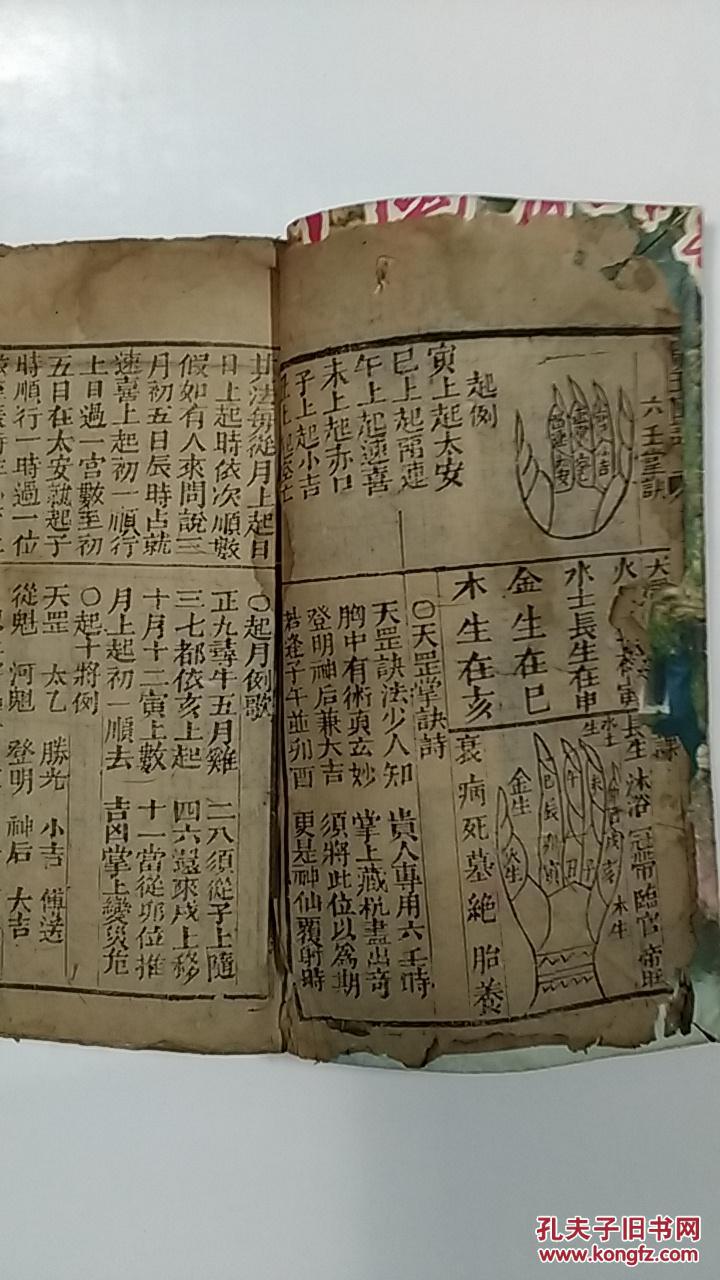 六壬掌訣
起例
寅上起太安
巳上起畱連
午上起速喜
未上起赤口
子上起小吉
水土長生在申
金生在巳
木生在亥
長生 沐浴 冠帶 臨官 帝旺
衰病死墓絕胎養
水土生
金生
火生
木生
〇天罡掌訣詩
天罡訣法少人知 貴人專用六壬時
胸中有術頁玄妙 掌上藏机盡出奇
登明神后兼大吉 須將此位以為期
若逢子午並卯酉 更是神仙覆射時
其法每從月上起日
日上起時依次順數
假如有人來問說三
月初五日辰時占就
速喜上起初一順行
上日過一宮數至初
五日在太安就起子
時順行一時過一位
〇起月例歌
正九尋牛五月雞 二八須從子上隨
三七都依亥上起 四六還來戌上移
十月十二寅上數 十一當從卯位推
月上起初一順去 吉凶掌上變災危
〇起十將例
天罡 太乙 勝光 小吉 傅送
從魁 河魁 登明 神后 大吉
孔夫子旧书网
www.kongfz.com